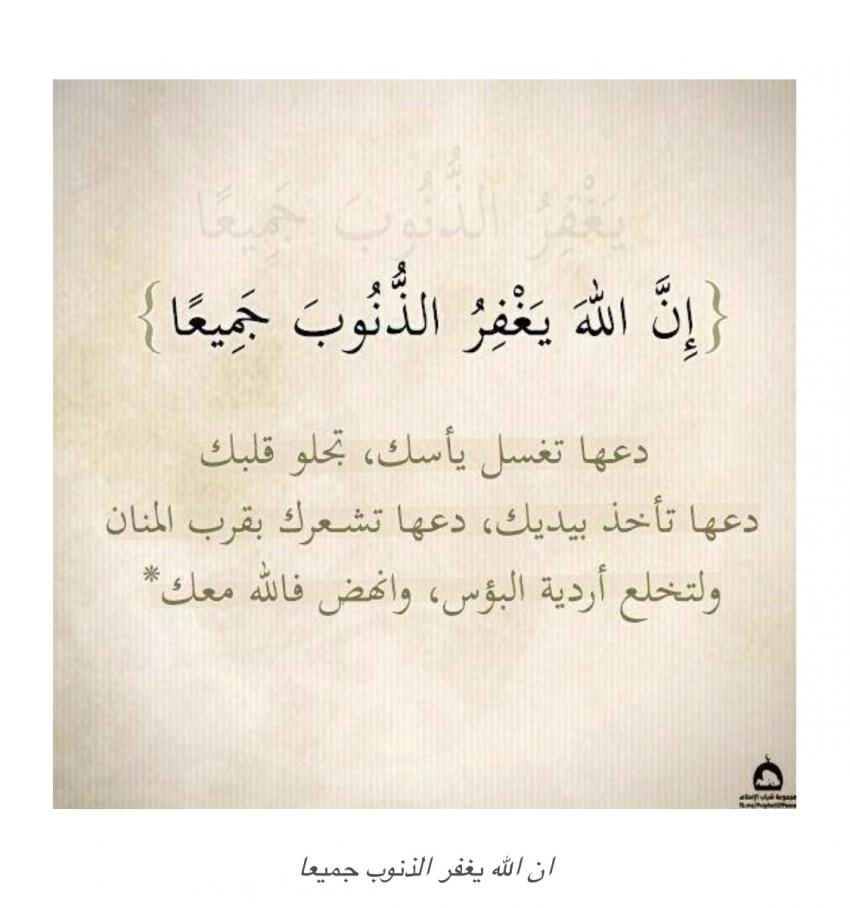 يَغْفِرُ الذُّنُوبَ جَمِيعًا
{إِنَّ اللهَ يَغْفِرُ الذُّنُوبَ جَمِيعًا}
دعها تغسل يأسك، تجلو قلبك
دعها تأخذ بيديك، دعها تشعرك بقرب المنان
ولتخلع أردية البؤس، وانهض فالله معك*
مجموعة شباب الإسلام
fb.me/ProphetOfPeace
ان الله يغفر الذنوب جميعا